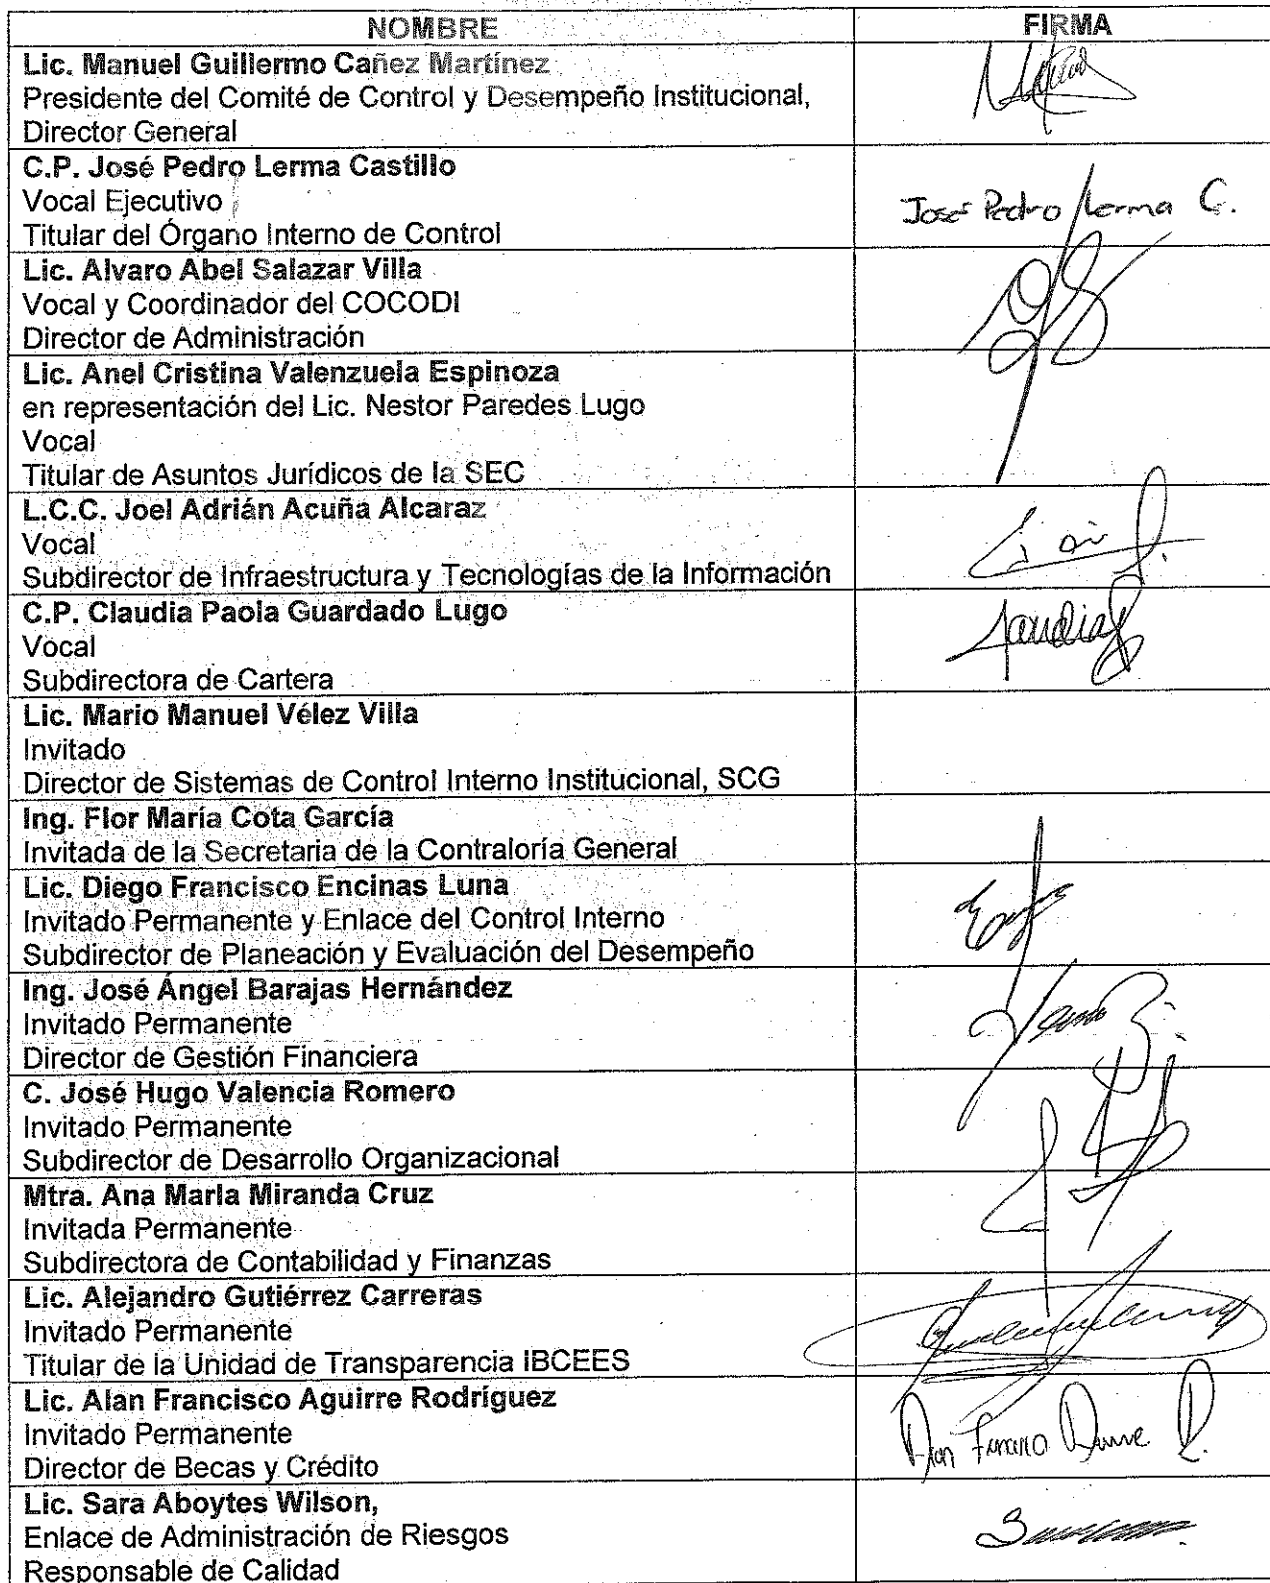 NOMBRE FIRMA
Lic. Manuel Guillermo Cañez Martínez
Presidente del Comité de Control y Desempeño Institucional,
Director General
C.P. José Pedro Lerma Castillo
Vocal Ejecutivo
Titular del Órgano Interno de Control
José Pedro Lerma C.
Lic. Alvaro Abel Salazar Villa
Vocal y Coordinador del COCODI
Director de Administración
Lic. Anel Cristina Valenzuela Espinoza
en representación del Lic. Nestor Paredes Lugo
Vocal
Titular de Asuntos Jurídicos de la SEC
L.C.C. Joel Adrián Acuña Alcaraz
Vocal
Subdirector de Infraestructura y Tecnologías de la Información
C.P. Claudia Paola Guardado Lugo
Vocal
Subdirectora de Cartera
Lic. Mario Manuel Vélez Villa
Invitado
Director de Sistemas de Control Interno Institucional, SCG
Ing. Flor María Cota García
Invitada de la Secretaria de la Contraloría General
Lic. Diego Francisco Encinas Luna
Invitado Permanente y Enlace del Control Interno
Subdirector de Planeación y Evaluación del Desempeño
Ing. José Ángel Barajas Hernández
Invitado Permanente
Director de Gestión Financiera
C. José Hugo Valencia Romero
Invitado Permanente
Subdirector de Desarrollo Organizacional
Mtra. Ana María Miranda Cruz
Invitada Permanente
Subdirectora de Contabilidad y Finanzas
Lic. Alejandro Gutiérrez Carreras
Invitado Permanente
Titular de la Unidad de Transparencia IBCEES
Lic. Alan Francisco Aguirre Rodríguez
Invitado Permanente
Director de Becas y Crédito
Lic. Sara Aboytes Wilson,
Enlace de Administración de Riesgos
Responsable de Calidad